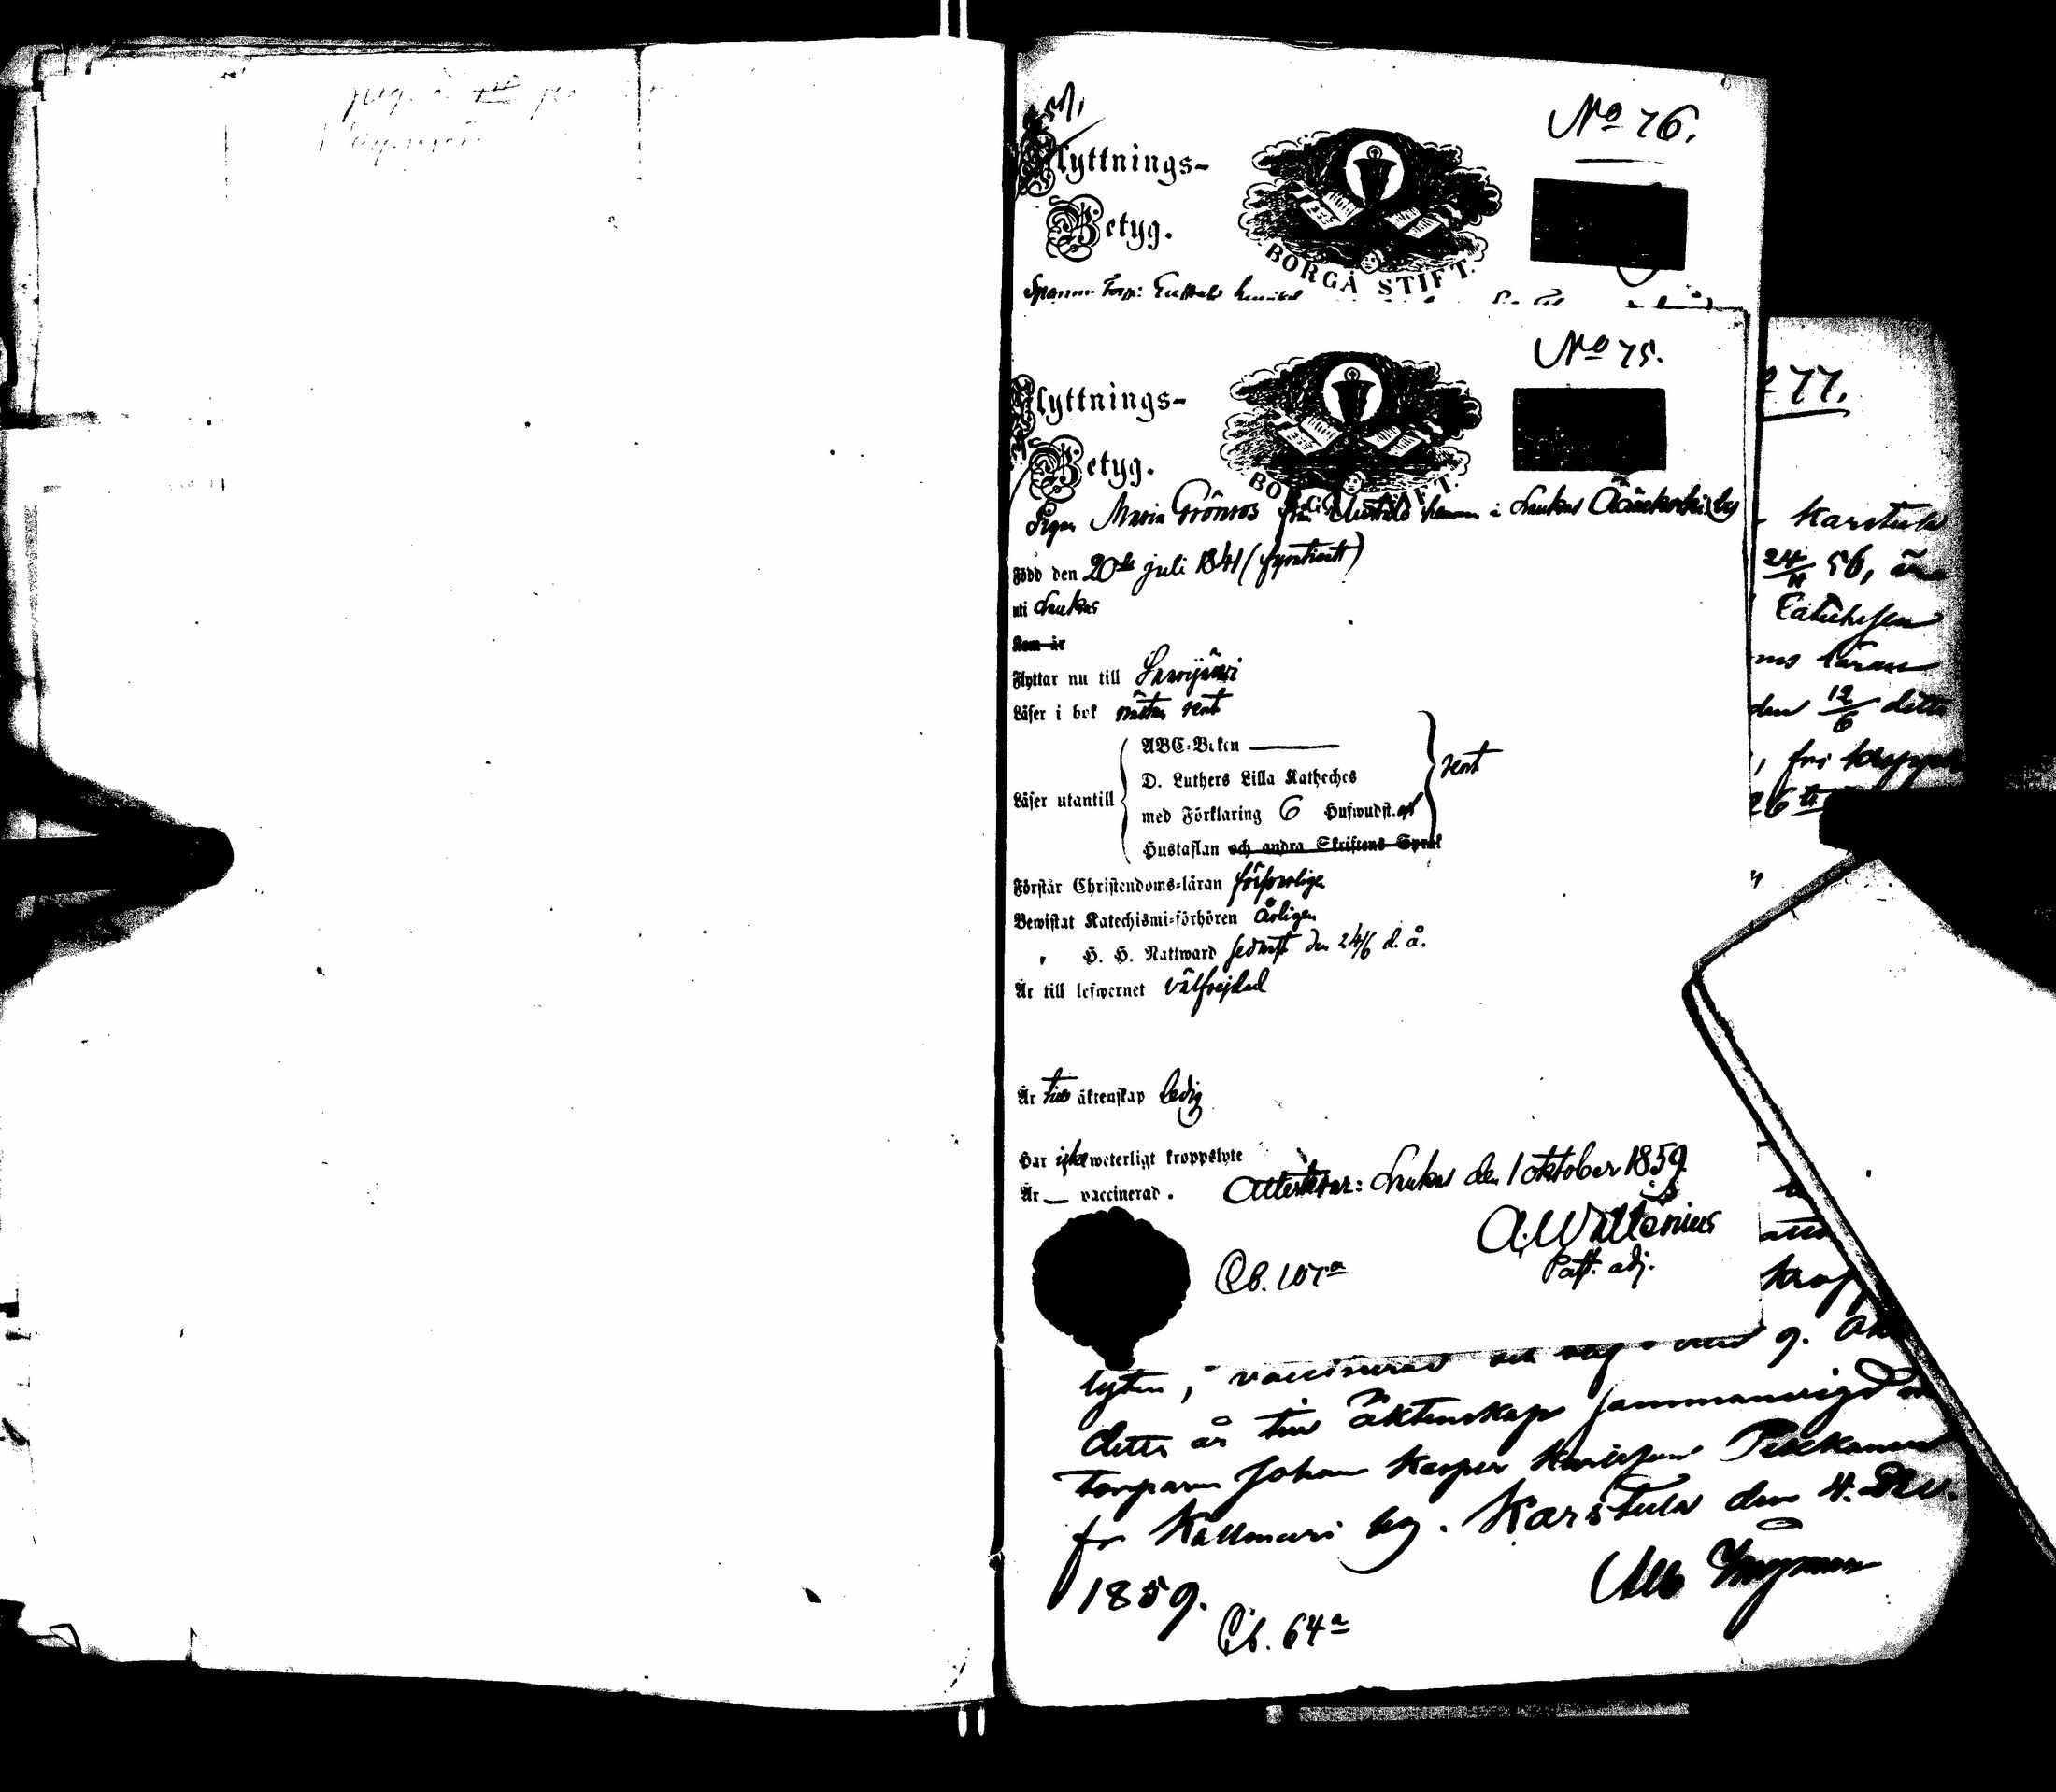 No 76.
Flyttnings-
Betyg.
BORGÅ STIFT.
No 75.
Flyttnings-
Betyg.
BORGÅ STIFT.
Pigan Maria Grönroos från hemman i Laukas by
Född den 20de juli 1841 (fyratioett)
uti Laukas
Kom år
Flyttar nu till Saarijärvi
Läser i bok nästan rent
ABC-Boken
D. Luthers Lilla Katheches
Läser utantill
med Förklaring 6 Hufwudst. och
rent
Hustaflan och andra Skriftens Språk
Förstår Christendoms-läran försvarligen
Bewistat Katechismi-förhören årligen
" H. H. Nattward sednast den 24/6 d. å.
Är till lefwernet välfrejdad
Är till äktenskap ledig
Har icke weterligt kroppslyte
Är — vaccinerad.
Attesterar: Laukas den 1 oktober 1859
A. Wallenius
Past. adj.
Cb. 107a
77.
Karstula
24/11 56, än
Catechesen
läran
den 12/6 detta
, fri kropps
26
lyten, vaccinerad och
detta år till äktenskap sammanvigd
Torparen Johan Kasper Pekkanen
fr Kallmari by. Karstula den 4. Dec.
1859.
Cb. 64a